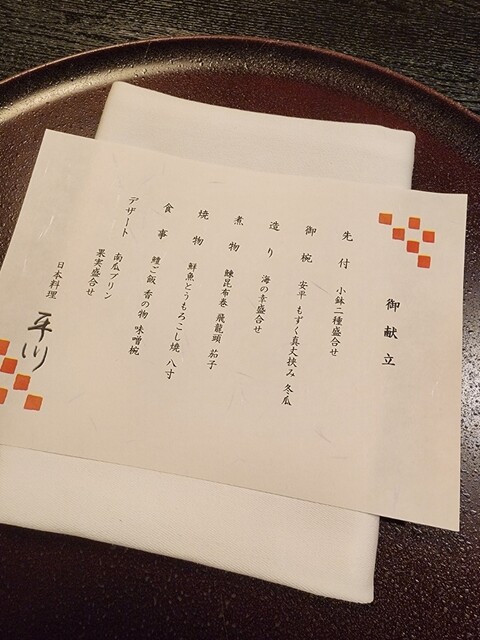 御献立
先付 小鉢二種盛合せ
御椀 安平 もずく真丈挟み 冬瓜
造り 海の幸盛合せ
煮物 鰊昆布巻 飛龍頭 茄子
焼物 鮮魚とうもろこし焼 八寸
食事 鱧ご飯 香の物 味噌椀
デザート 南瓜プリン
果実盛合せ
日本料理 平川